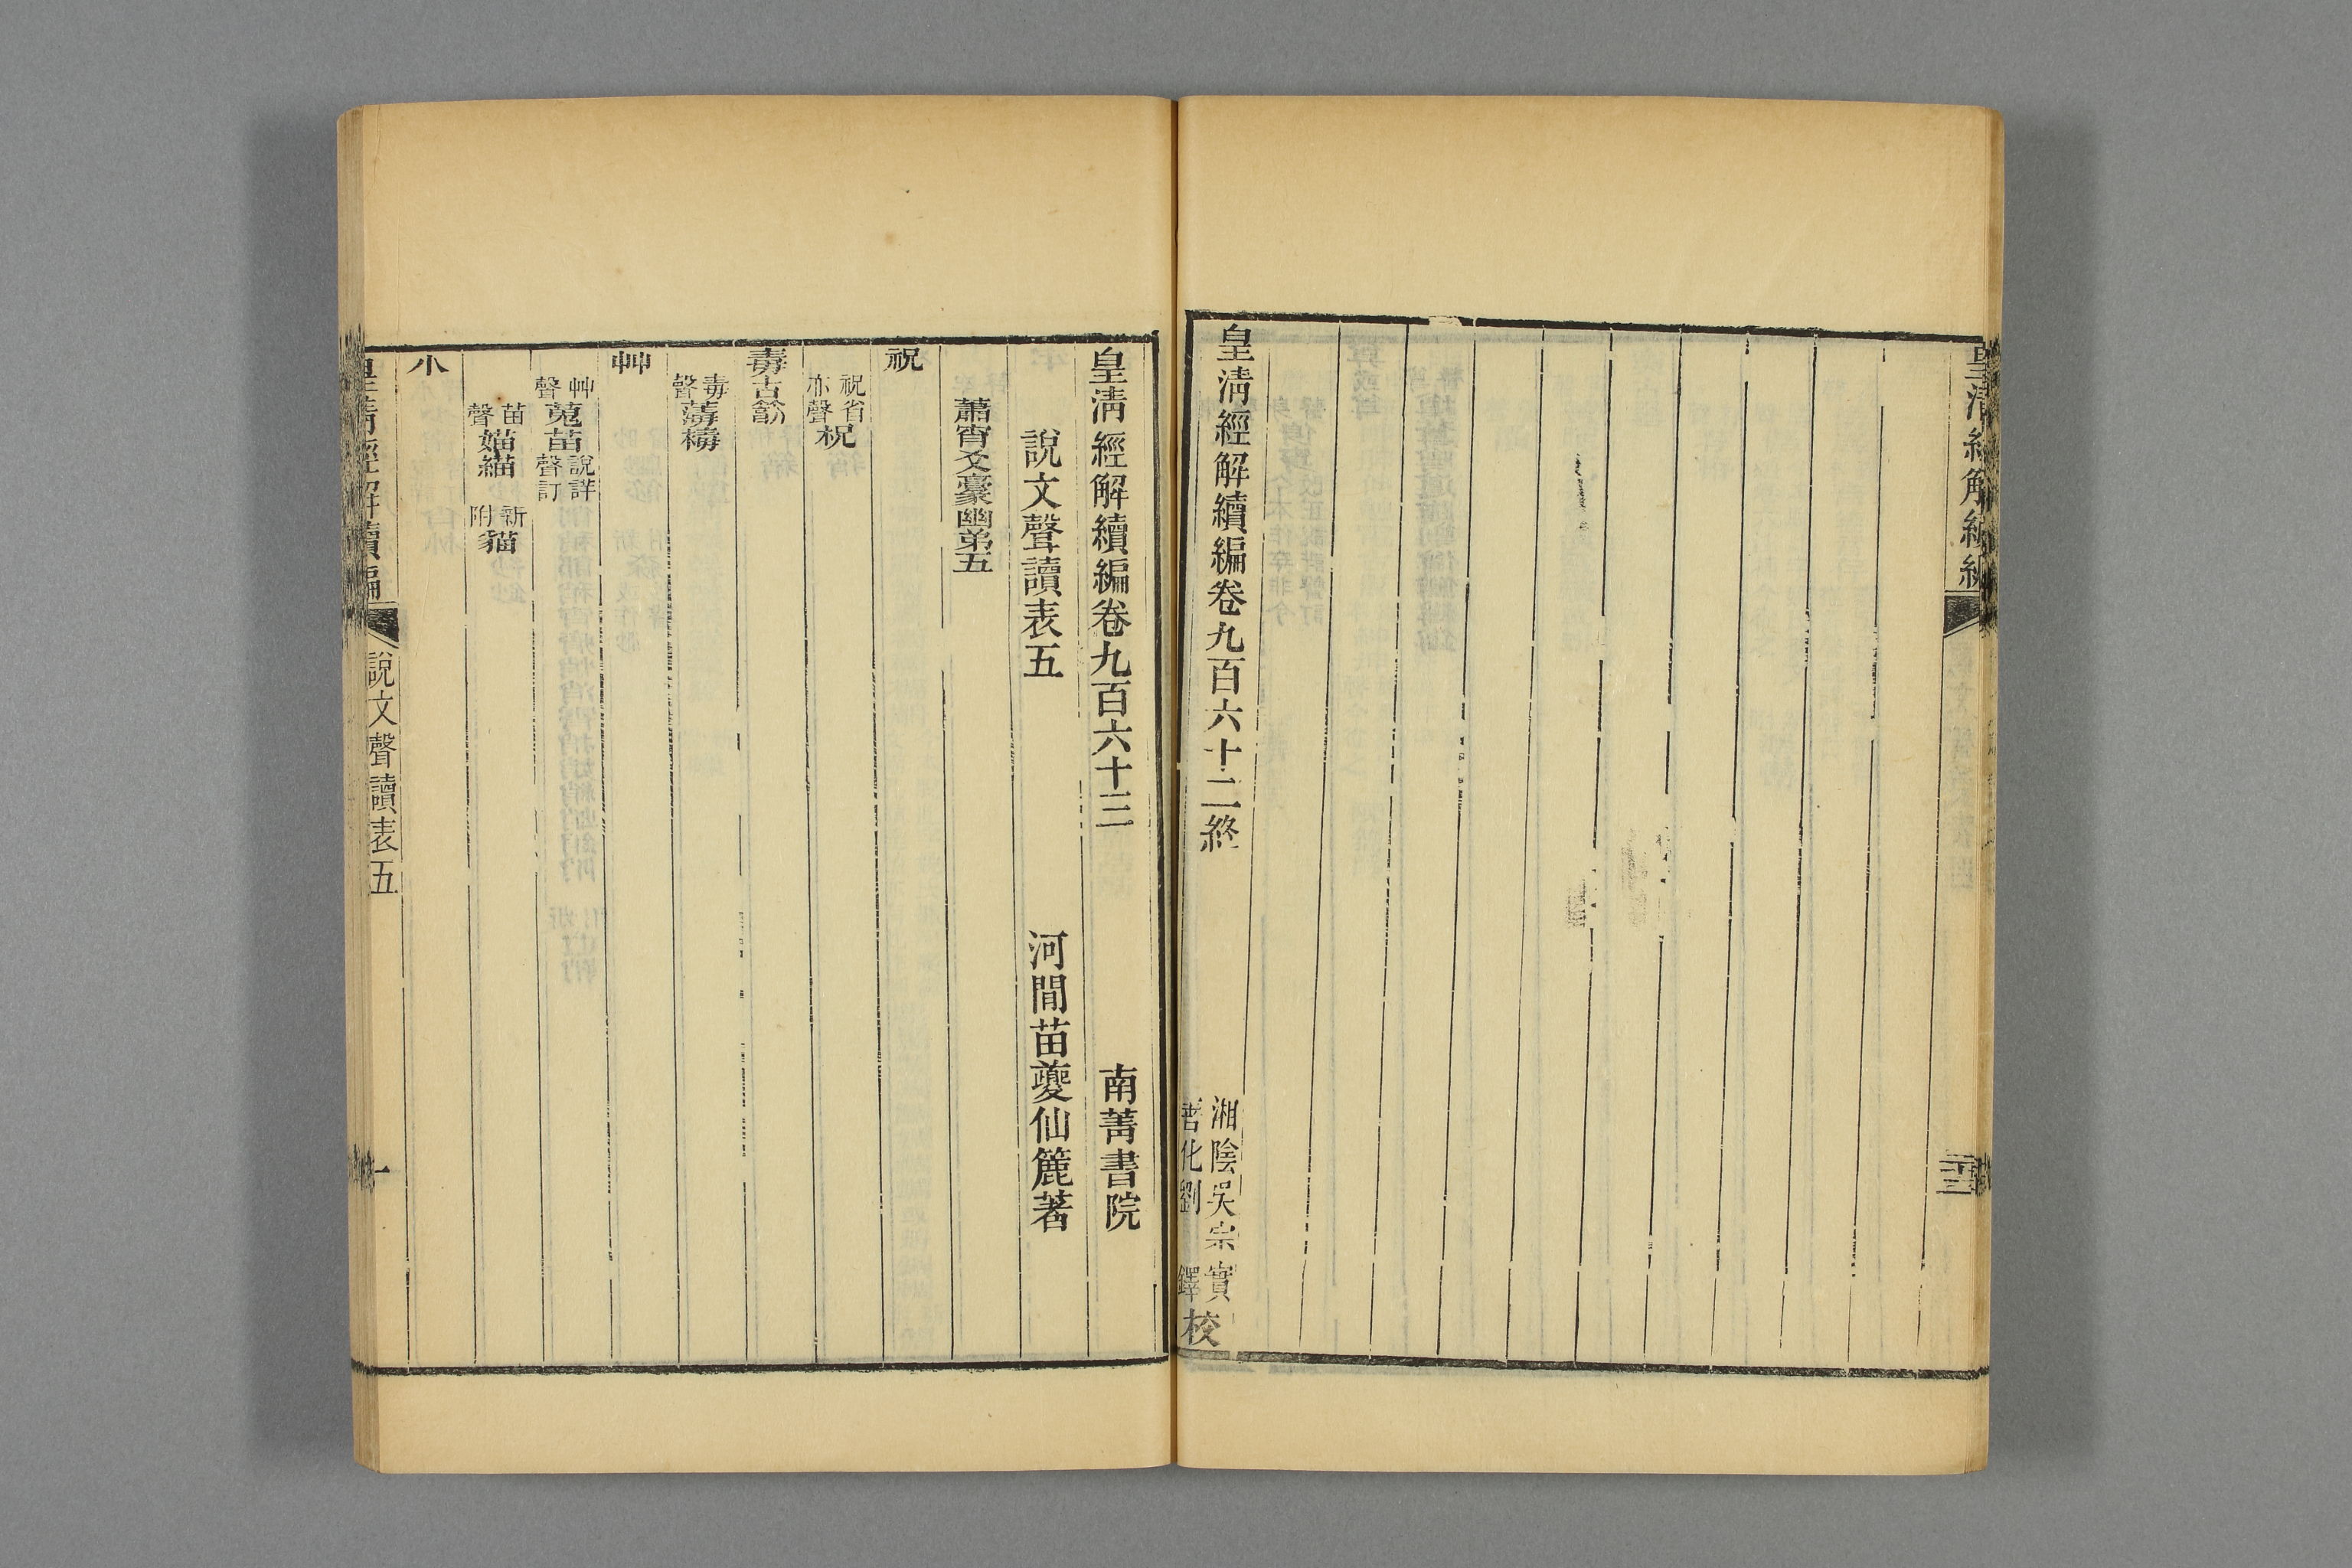 皇清經解續編
皇清經解續編卷九百六十二終
湘陰吳宗實
善化劉鐸校
皇清經解續編卷九百六十三
南菁書院
說文聲讀表五
河間苗夔仙簏著
蕭宵爻豪幽弟五
祝
祝省
亦聲柷
毒古䈞
毒
聲䓯㯖
艸
艸
聲蒐苗說詳
聲訂
苗
聲媌緢新
附貓
小
皇清經解續編
說文聲讀表五
一